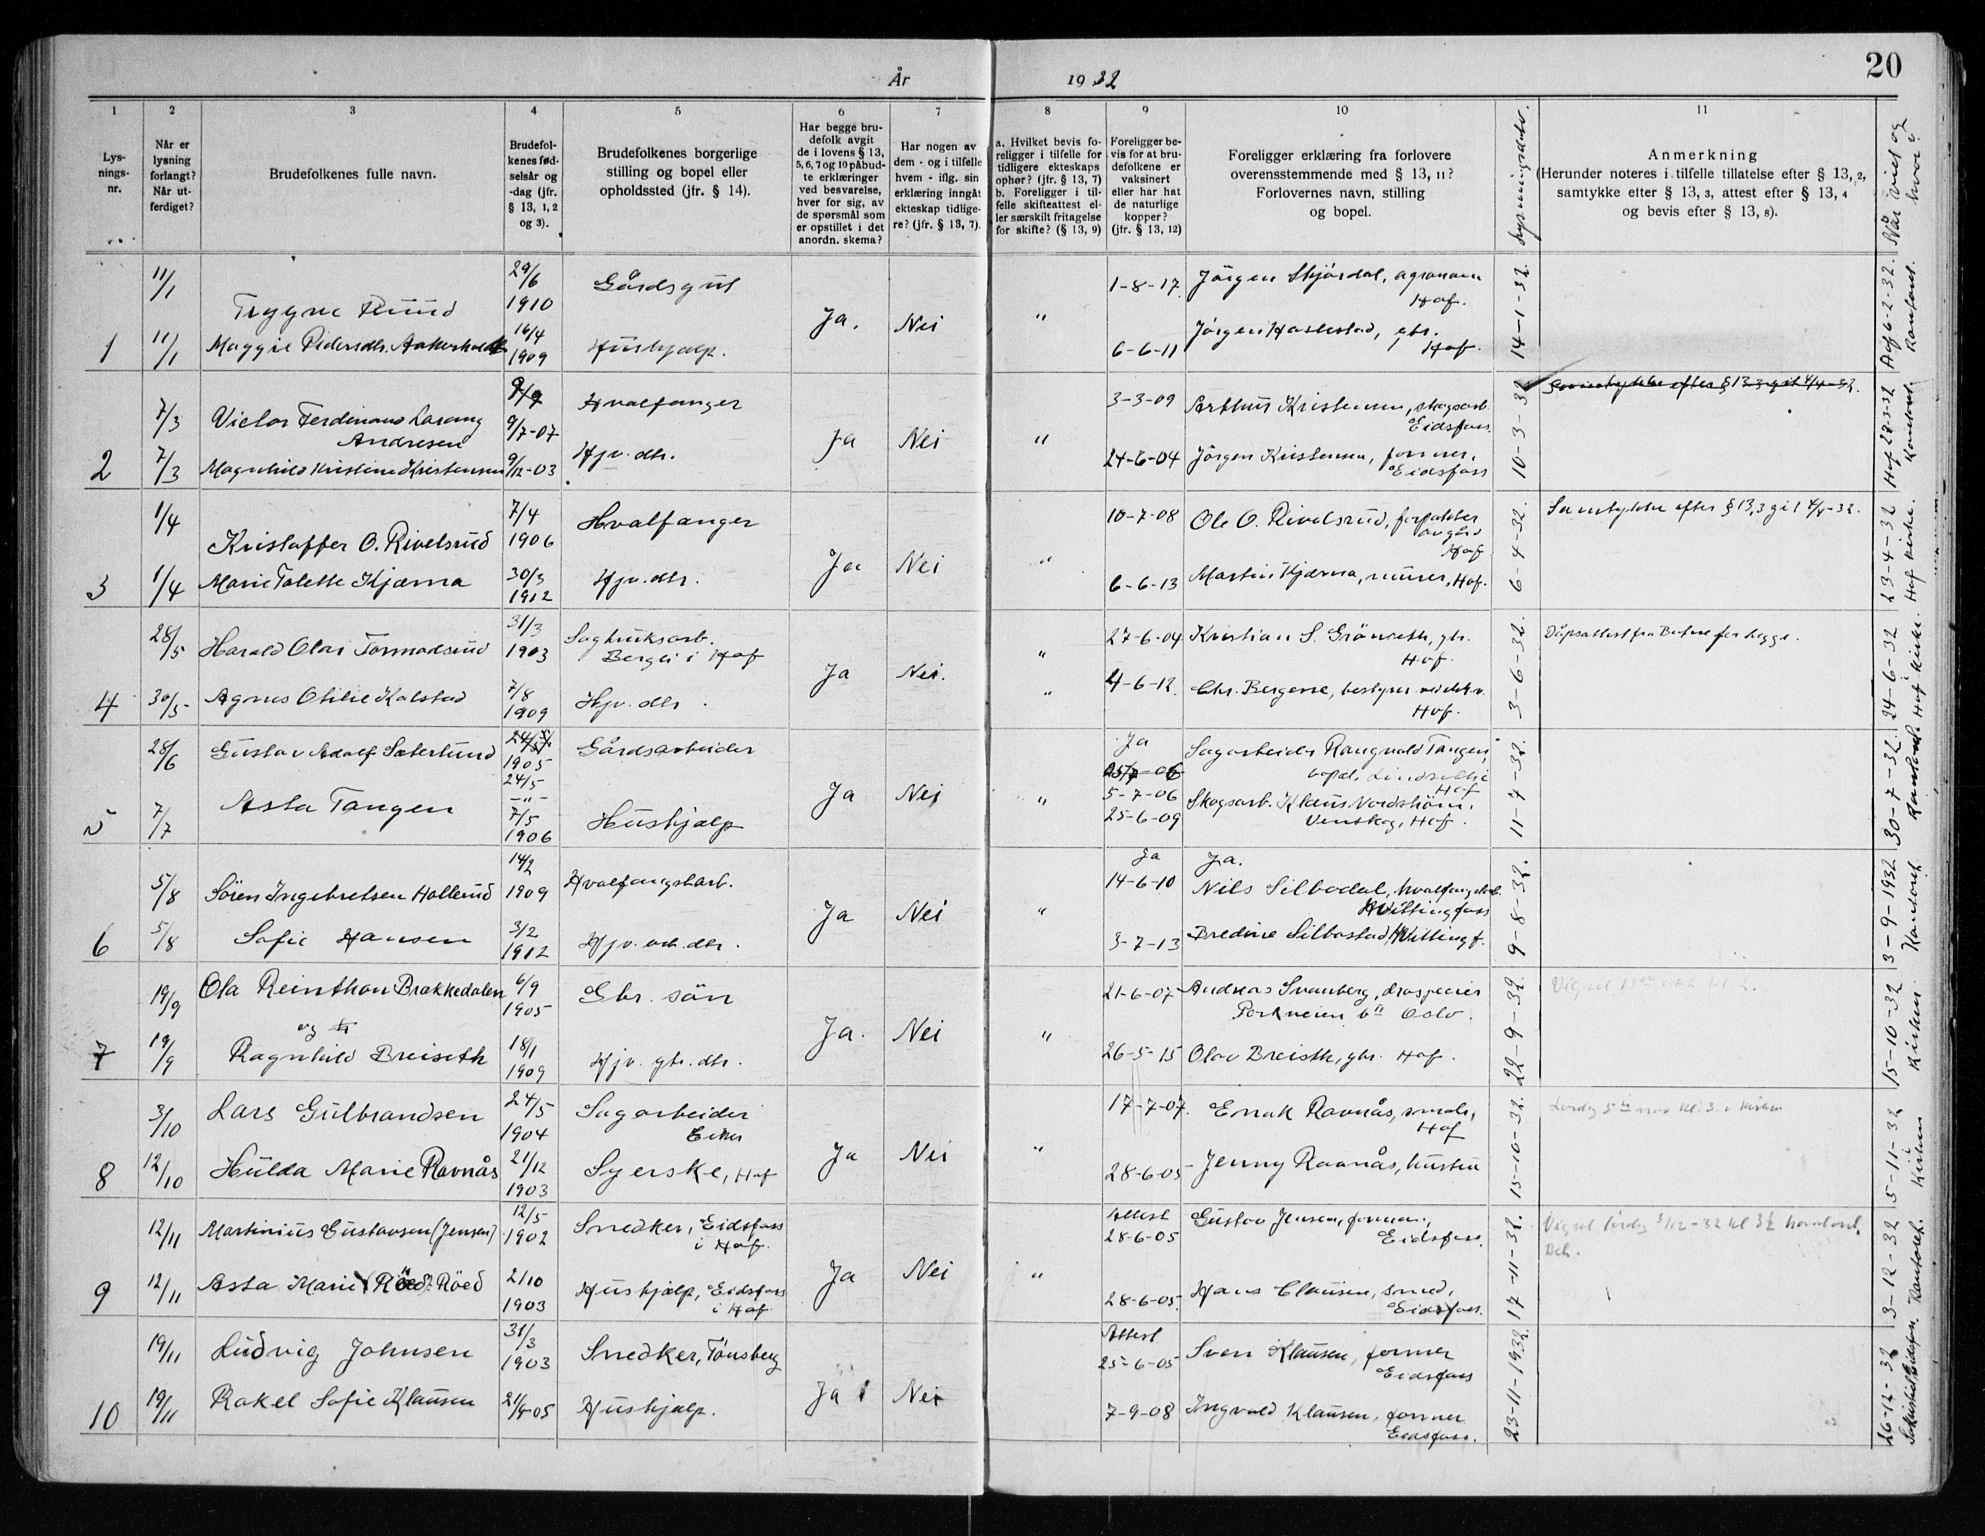 År 1932
20
1
2
3
4
5
6
7
8
9
10
11
Lys-
nings-
nr.
Når er
lysning
forlangt?
Når ut-
ferdiget?
Brudefolkenes fulle navn.
Brudefol-
kenes fød-
selsår og
-dag (jfr.
§ 13, 1, 2
og 3).
Brudefolkenes borgerlige
stilling og bopel eller
opholdssted (jfr. § 14).
Har begge bru-
defolk avgit
de i lovens § 13,
5, 6, 7 og 10 påbud-
te erklæringer
ved besvarelse,
hver for sig, av
de spørsmål som
er opstillet i det
anordn. skema?
Har nogen av
dem - og i tilfelle
hvem - iflg. sin
erklæring inngåt
ekteskap tidlige-
re? (jfr. § 13, 7).
a. Hvilket bevis fo-
religger i tilfelle for
tidligere ekteskaps
ophør? (jfr. § 13, 7)
b. Foreligger i til-
felle skifteattest el-
ler særskilt fritagelse
for skifte? (§ 13, 9)
Foreligger be-
vis for at bru-
defolkene er
vaksinert
eller har hat
de naturlige
kopper?
(jfr. § 13, 12)
Foreligger erklæring fra forlovere
overensstemmende med § 13, 11?
Forlovernes navn, stilling
og bopel.
Lysningsdato.
Anmerkning
(Herunder noteres i tilfelle tillatelse efter § 13, 2,
samtykke efter § 13, 3, attest efter § 13, 4
og bevis efter § 13, 8).
Når viet og
hvor?
1
11/1
Trygve Ruud
29/6
1910
Gårdsgut
Ja.
Nei
"
1-8-17
Jörgen Skjärdal, agronom
Hof.
14-1-32.
6-2-32.
11/1
Maggie Pedersdtr. Aakerholt
16/4
1909
Hushjælp.
6-6-11
Jörgen Haslestad, gbr.
Hof.
2
7/3
Victor Ferdinand
Andresen
9/7-07
Hvalfanger
Ja
Nei
"
3-3-09
Arthur Kristensen, skogsarb.
Eidsfoss.
10-3-32
Samtykke efter § 13,3 git 4/4-32.
Hof 28-3-32
7/3
Magnhild Kristine Kristensen
9/12-03
Hjv. dtr.
24-6-04
Jörgen Kristensen, former,
Eidsfoss
3
1/4
Kristoffer O. Rivelsrud
7/4
1906
Hvalfanger
Ja
Nei
"
10-7-08
Ole O. Rivelsrud, forpakter
Hof
6-4-32.
Samtykke efter § 13,3 git 4/4-32.
23-4-32
Hof kirke.
1/4
Marie Tolette Kjærna
30/3
1912
Hjv. dtr.
6-6-13
Martin Kjærna, murer, Hof.
4
28/5
Harald Olai Tormodsrud
31/3
1903
Sagbruksarb.
Berger i Hof
Ja
Nei.
"
27-6-04
Kristian S. Grönseth, gbr.
Hof.
3-6-32.
Dåpsattest fra Botne for begge.
24-6-32
Hof kirke.
30/5
Agnes Otilie Kolstad
7/8
1909
Hjv. dtr.
"
4-6-12.
Chr. Bergene, bestyrer
Hof.
5
28/6
Gustav Adolf Sæterlund
1905
24/5
Gårdsarbeider
Ja
Nei
"
Ja
5-7-06
Sagarbeider Rangvald Tangen,
bopel,
Hof
11-7-32.
30-7-32.
7/7
Asta Tangen
7/5
1906
Hushjælp
25-6-09
Skogsarb. Klaus Nordström,
Venskog, Hof.
6
5/8
Sören Ingebretsen Hollerud
14/2
1909
Hvalfangstarb.
Ja
Nei
"
Ja
14-6-10
Ja.
Nils Silbodal, hvalfangstarb.
Hvittingfoss
9-8-32.
3-9-1932
Kontoret
5/8
Sofie Hansen
3/2
1912
Hjv. dtr.
3-7-13
Bredine Silbostad, Hvittingf.
7
19/9
Ola Reinthon Brækkedalen
6/9
1905
Gbr. sön
Ja.
Nei
"
21-6-07
Andreas Svanberg, drosjeeier
Oslo.
22-9-32.
15-10-32
Kirken
og
19/9
Ragnhild Breiseth
18/1
1909
Hjv. gbr. dtr.
26-5-15
Olav Breiseth, gbr. Hof.
8
3/10
Lars Gulbrandsen
24/5
1904
Sagarbeider
Eiker
Ja
Nei
"
17-7-07.
Enok Ravnås, småbr.,
Hof
15-10-32.
Lördag 5te nov. kl. 3 i kirken
5-11-32
Kirken
12/10
Hulda Marie Ravnås
21/12
1903
Syerske, Hof
28-6-05
Jenny Ravnås, hustru
9
12/11
Martinius Gustavsen (Jensen)
12/5
1902
Snedker, Eidsfoss
i Hof.
Ja
Nei
"
Attest
28-6-05
Gustav Jensen, former,
Eidsfoss.
17-11-32.
Vigsel lördag 3/12-32 kl 3½
3-12-32
Kontoret.
12/11
Asta Marie Röed
2/10
1903
Hushjælp, Eidsfoss
i Hof.
28-6-05.
Hans Clausen, smed,
Eidsfoss.
10
19/11
Ludvig Johnsen
31/3
1903
Snedker, Tönsberg
Ja
Nei
Attest
25-6-05
Sven Klausen, former
Eidsfoss
23-11-1932.
26-12-32
19/11
Rakel Sofie Klausen
Hushjælp.
7-9-08
Ingvald Klausen, former
Eidsfoss.